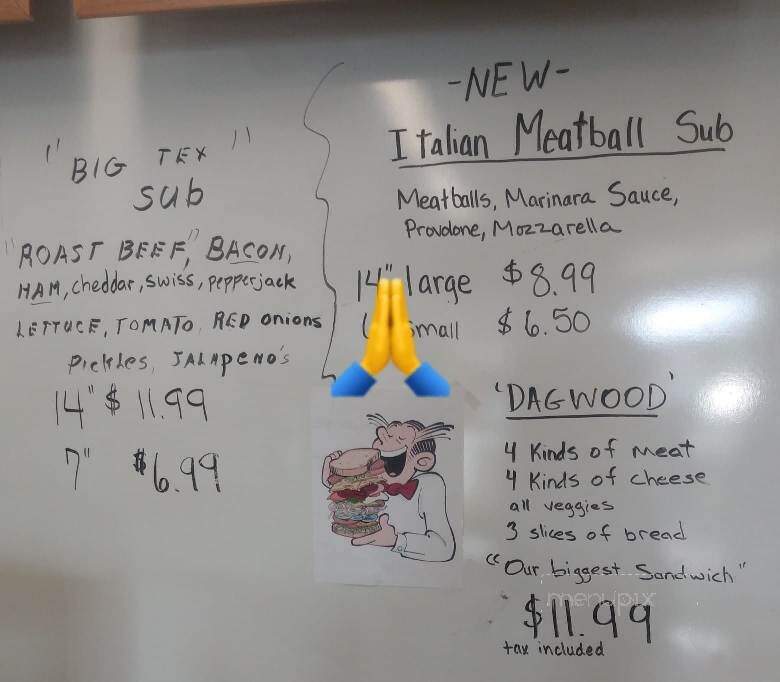 "BIG TEX"
sub
"ROAST BEEF," BACON,
HAM, cheddar, swiss, pepperjack
LETTUCE, TOMATO, RED onions
Pickles, JALAPENO's
14" $ 11.99
7" $6.99
-NEW-
Italian Meatball Sub
Meatballs, Marinara Sauce,
Provolone, Mozzarella
14" large $8.99
small $6.50
'DAGWOOD'
4 Kinds of Meat
4 Kinds of cheese
all veggies
3 slices of bread
"Our biggest Sandwich"
menupix
$11.99
tax included